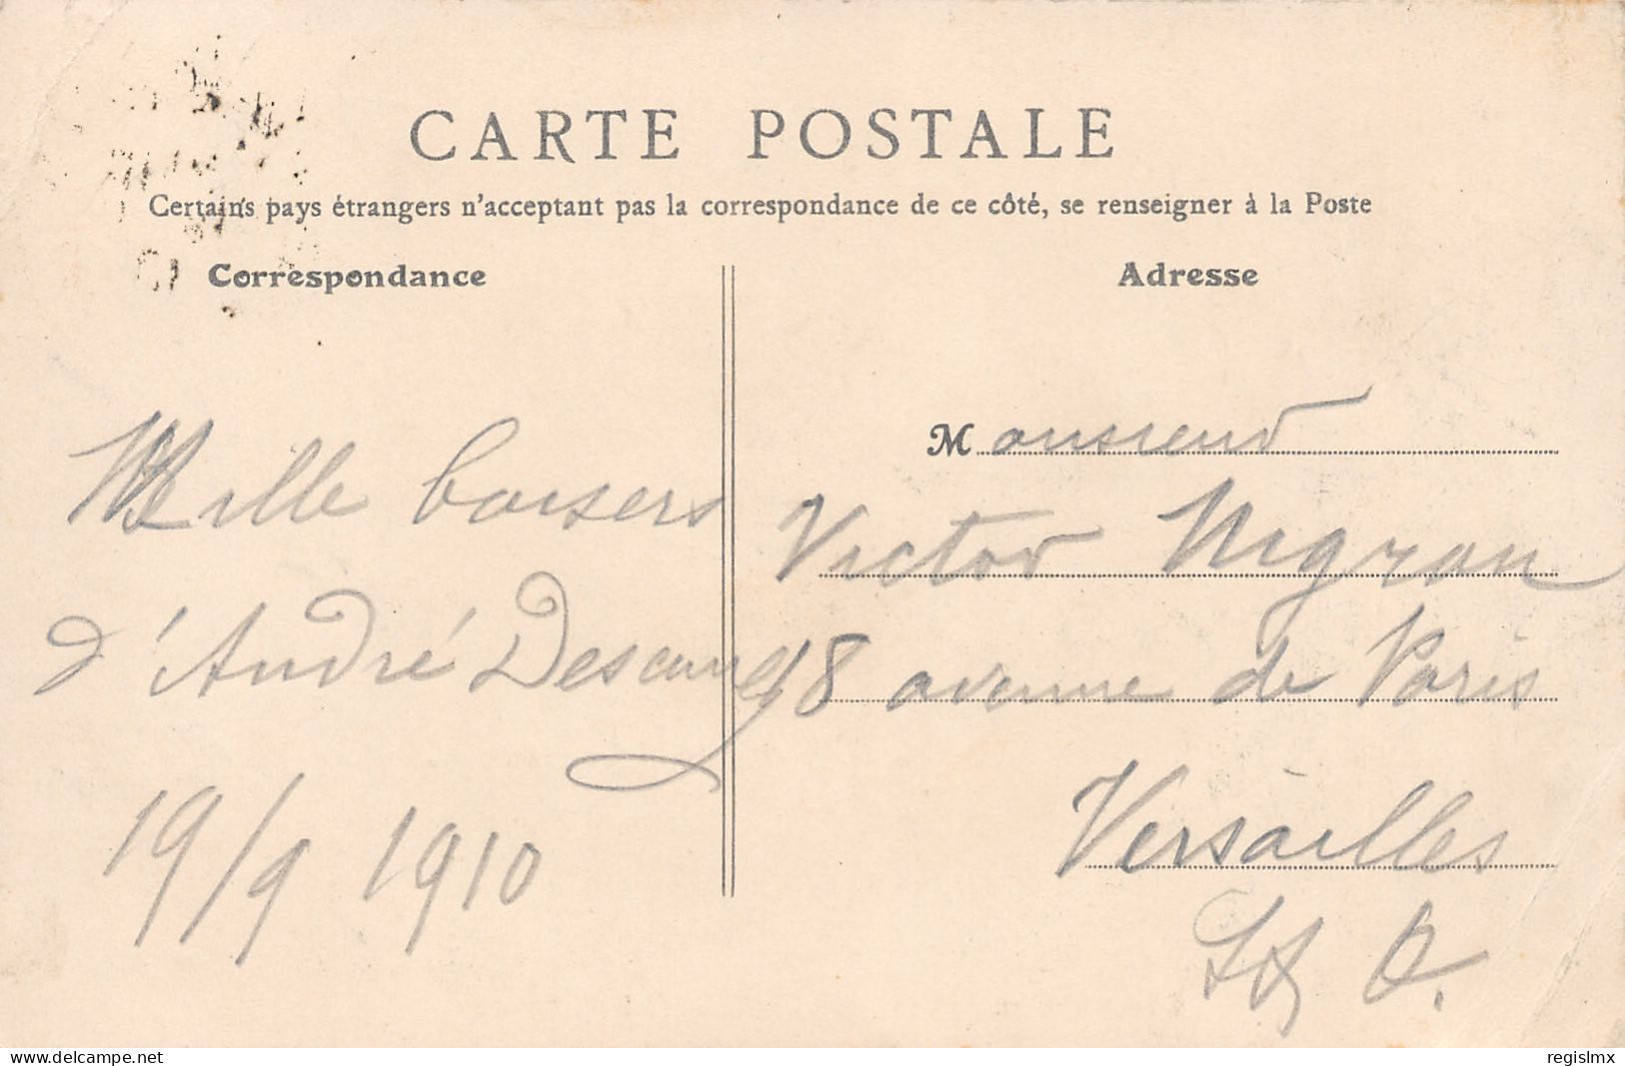 CARTE POSTALE
Certains pays étrangers n'acceptant pas la correspondance de ce côté, se renseigner à la Poste
Correspondance
Mille baisers
d'André
19/9 1910
Adresse
Monsieur
Victor Migran
18 avenue de Paris
Versailles
S & O.
www.delcampe.net
regislmx